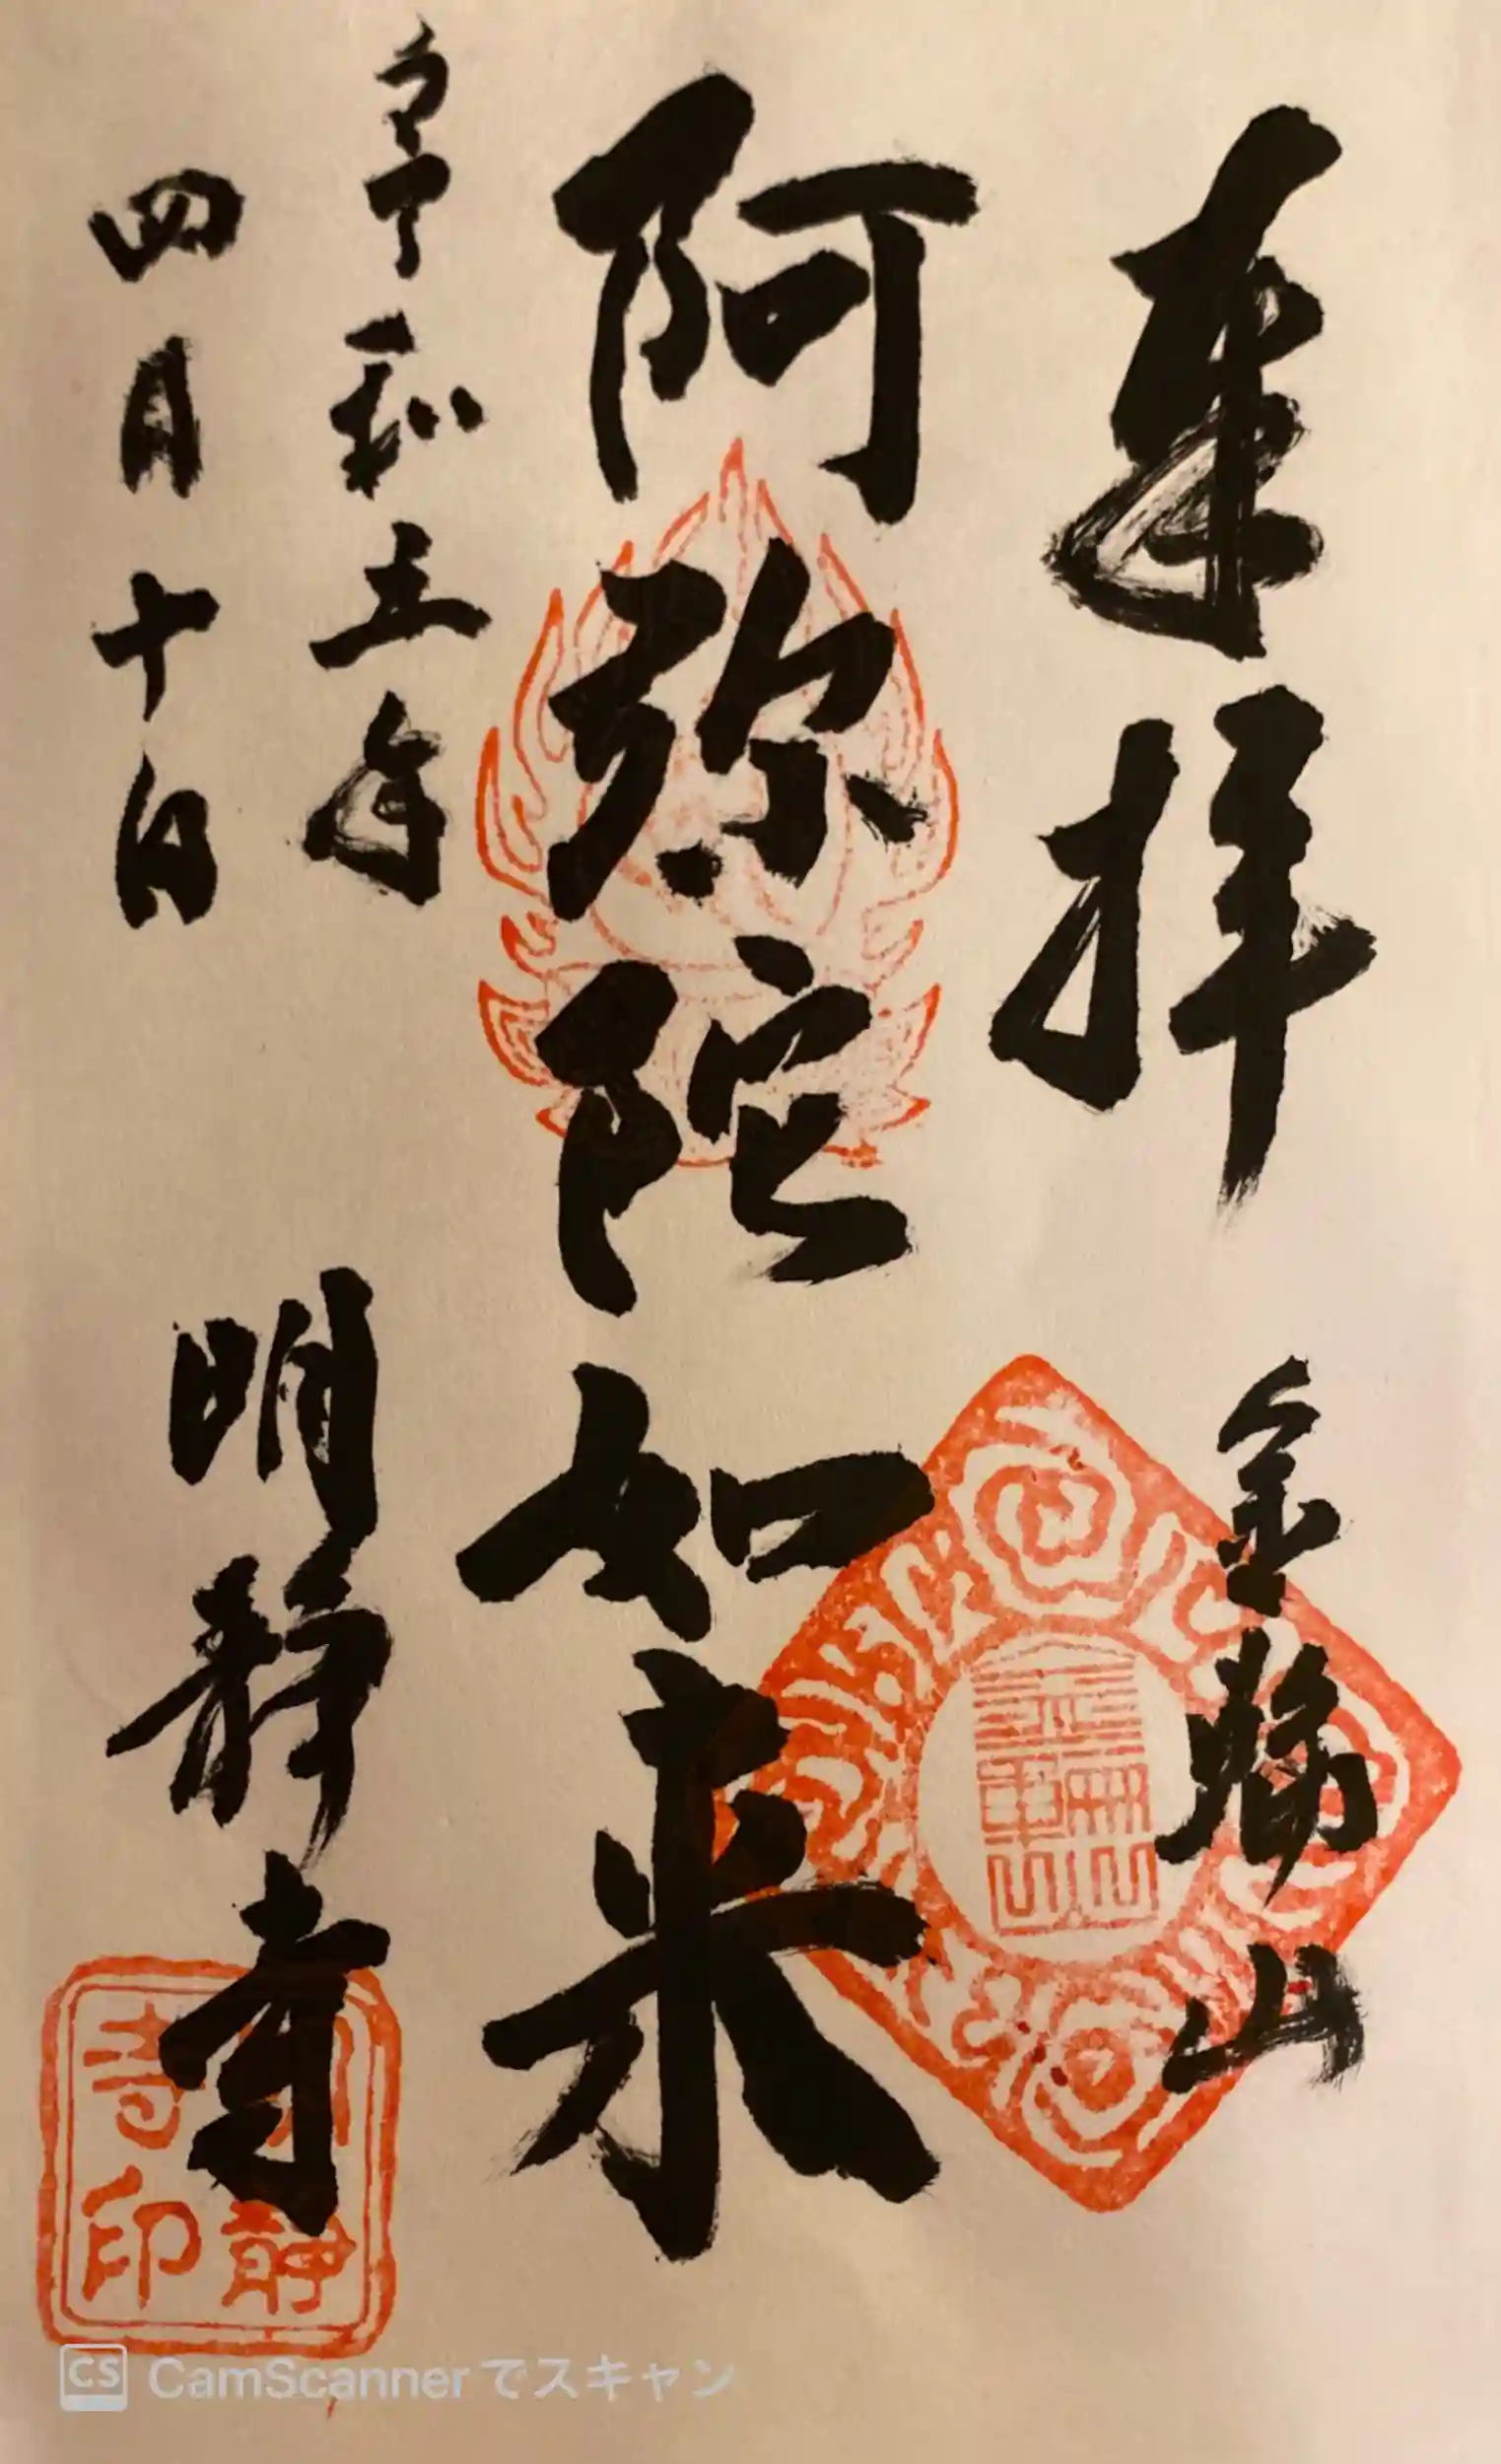 奉拝 金輪山
阿弥陀如来
令和五年
四月十日
明静寺
金輪山
静
寺印
CS CamScannerでスキャン